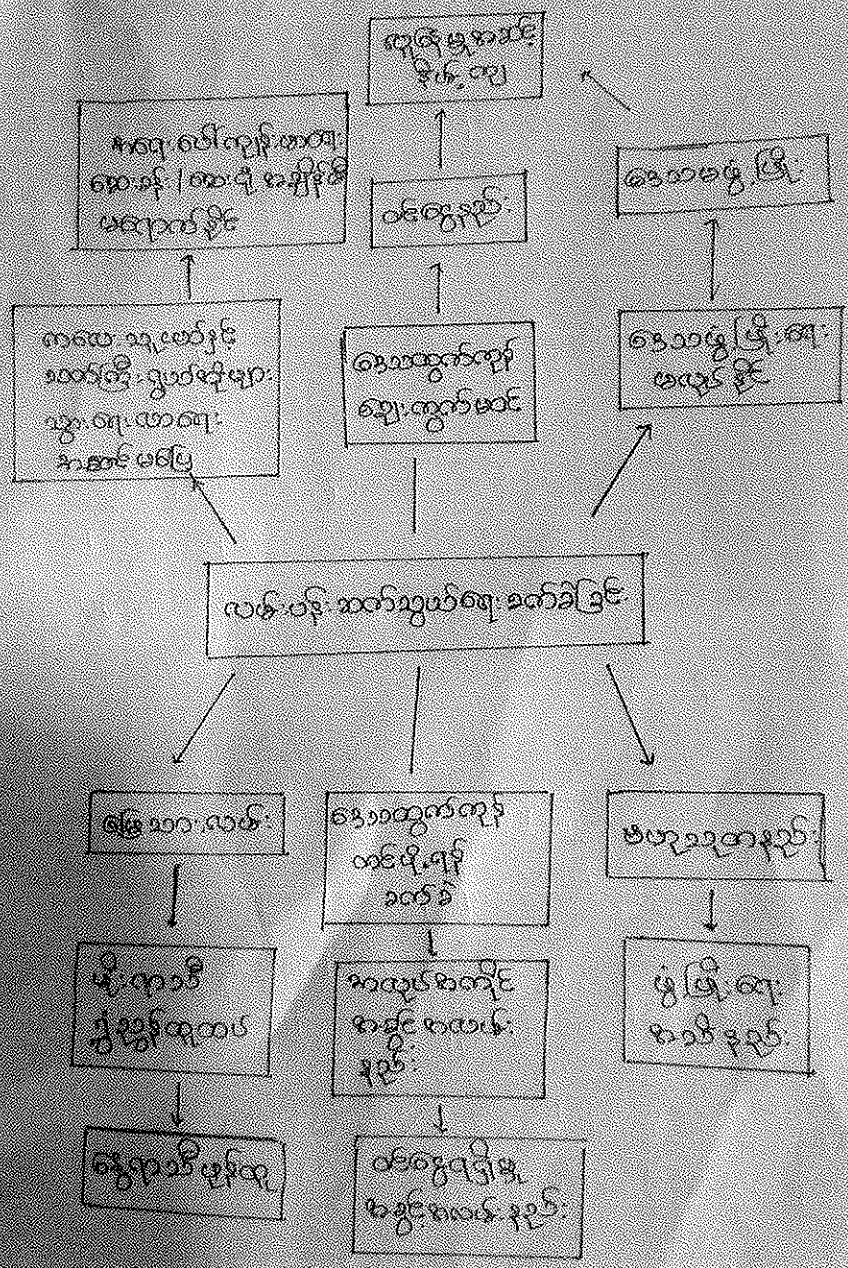 လူနေမှုအဆင့်
နိမ့်ကျ
အရေးပေါ်ကျန်းမာရေး
ဆေးခန်း / ဆေးရုံ အချိန်မီ
မရောက်နိုင်
ဝင်ငွေနည်း
ဒေသမဖွံ့ဖြိုး
ကလေး သူငယ်နှင့်
သက်ကြီးရွယ်အိုများ
သွားရေးလာရေး
အဆင်မပြေ
ဒေသထွက်ကုန်
ဈေးကွက်မဝင်
ဒေသဖွံ့ဖြိုးရေး
မလုပ်နိုင်
လမ်းပန်းဆက်သွယ်ရေး ခက်ခဲခြင်း
မြေသားလမ်း
ဒေသထွက်ကုန်
တင်ပို့ရန်
ခက်ခဲ
ဗဟုသုတနည်း
မိုးရာသီ
ရွှံ့ညွှန်ထူထပ်
အလုပ်အကိုင်
အခွင့်အလမ်း
နည်း
ဖွံ့ဖြိုးရေး
အသိနည်း
နွေရာသီဖုန်ထူ
ဝင်ငွေရရှိမှု
အခွင့်အလမ်းနည်း